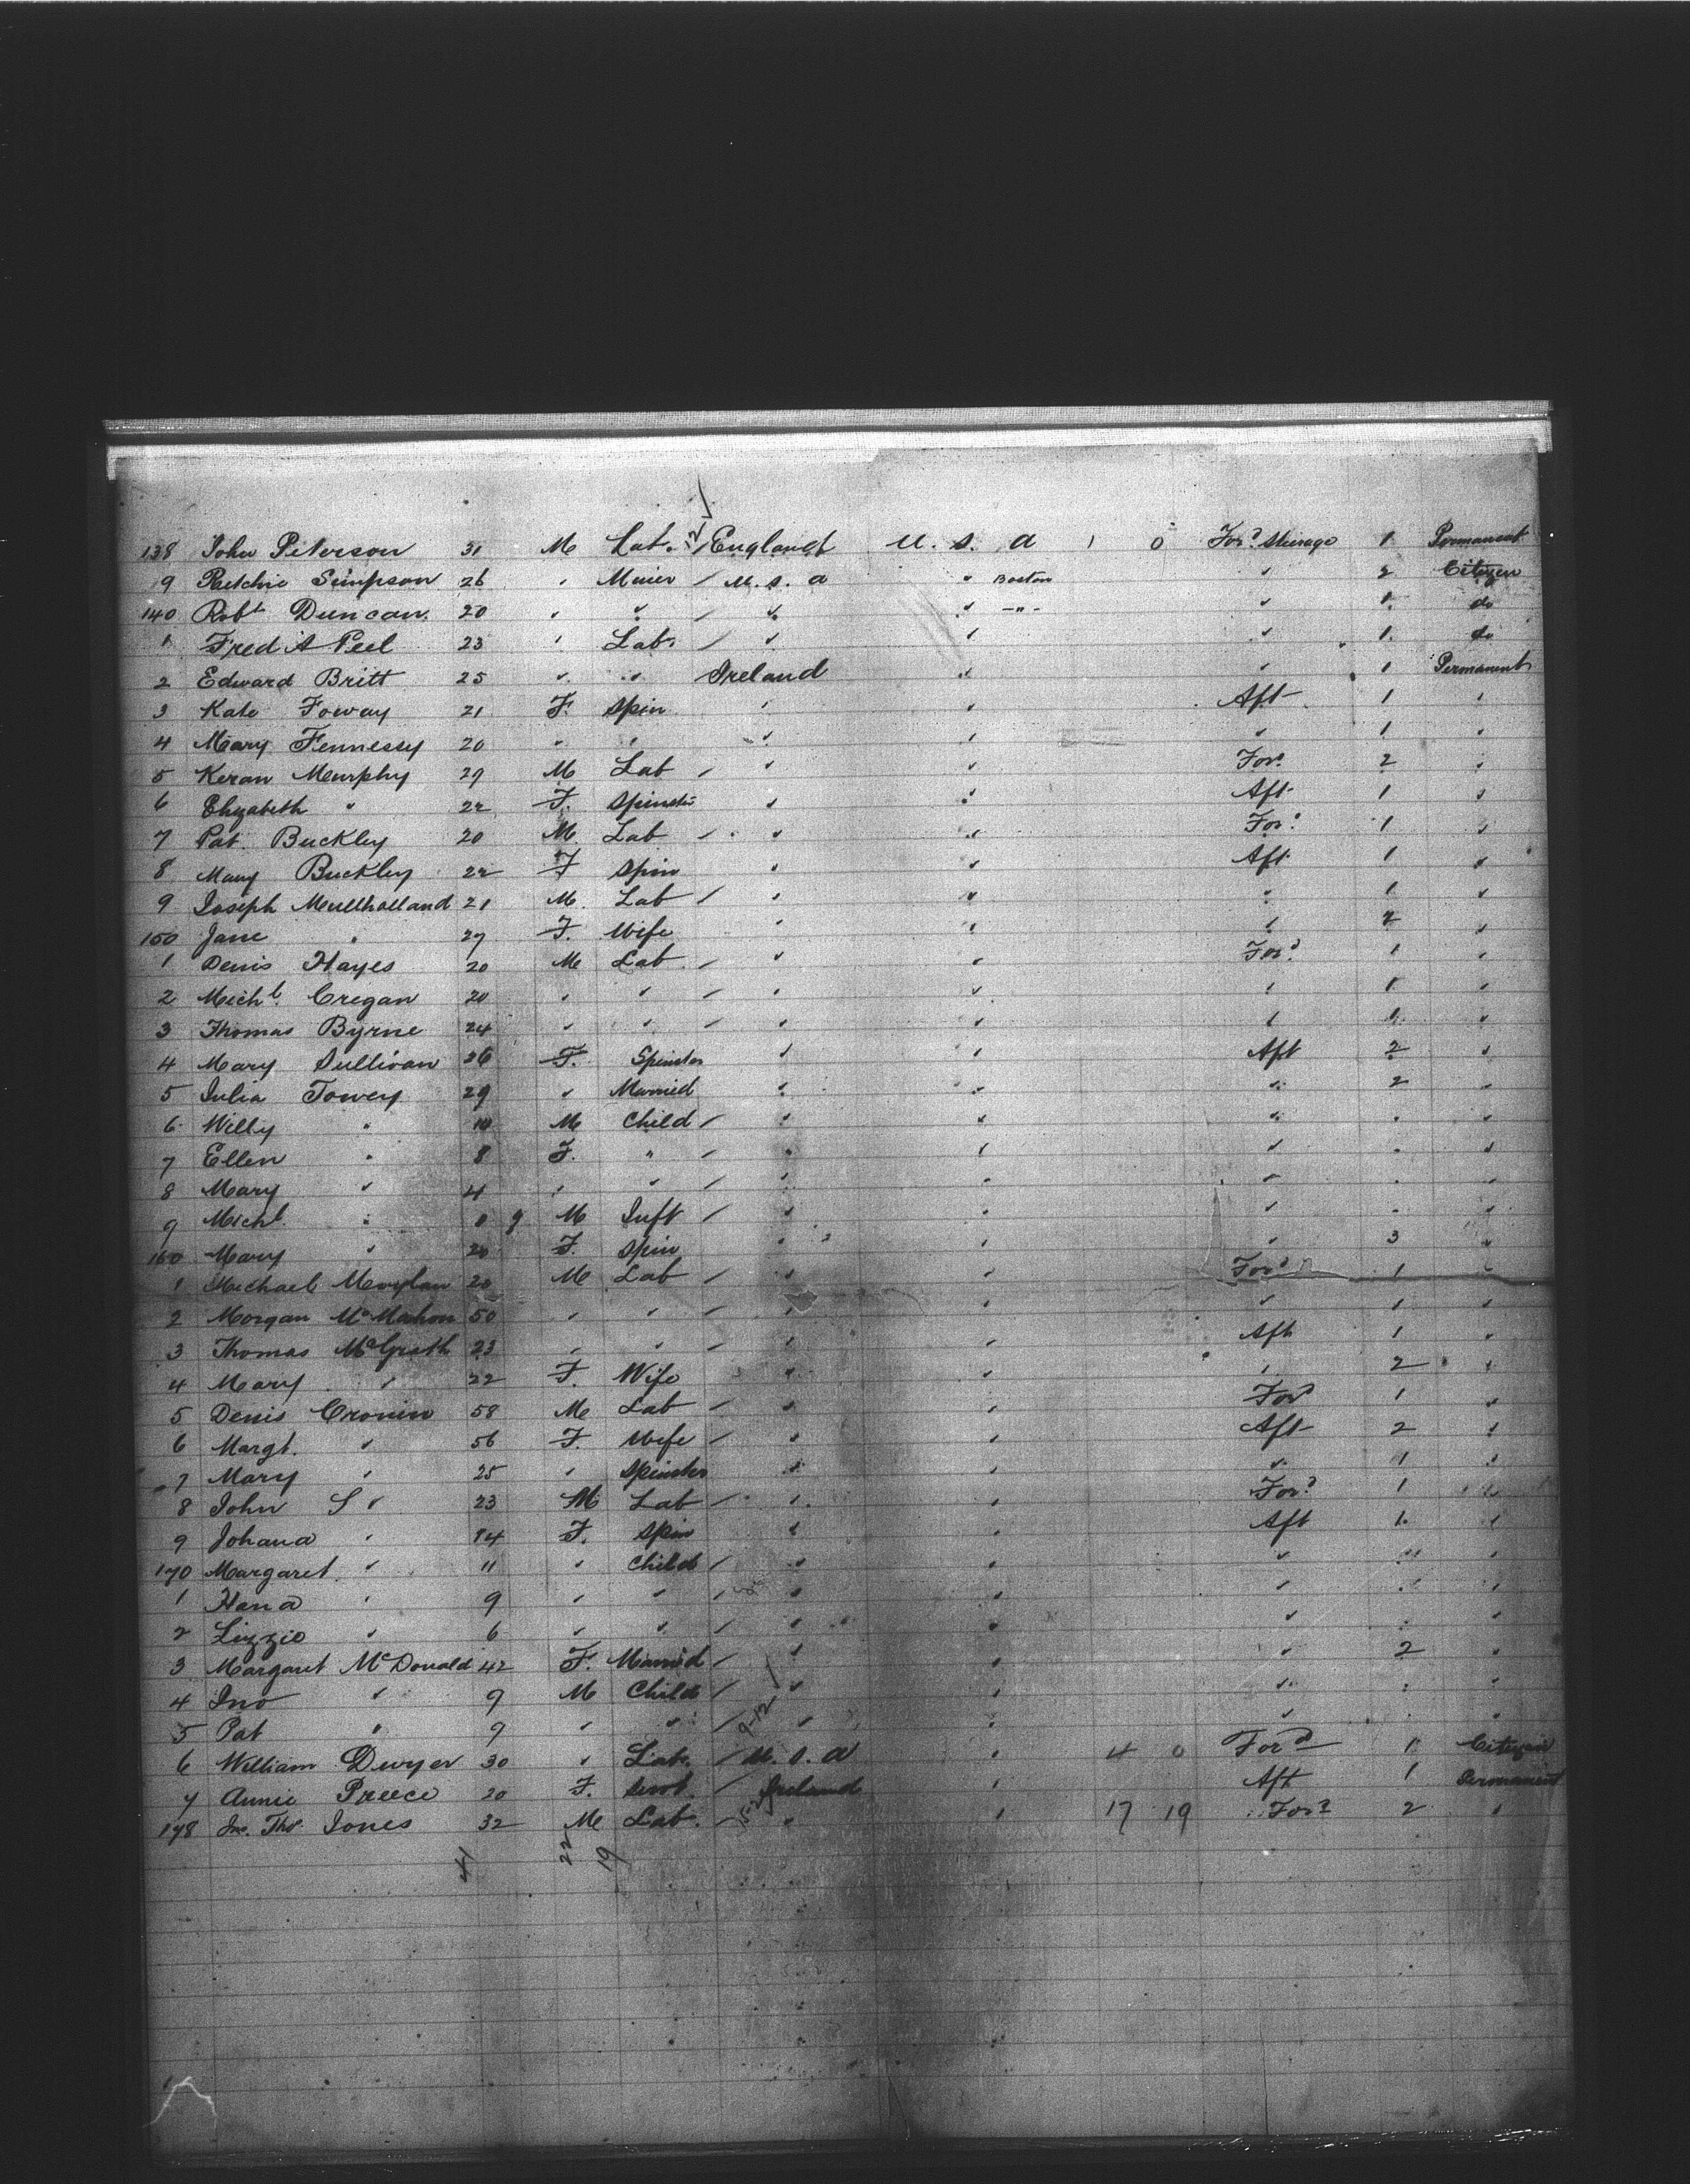 138 John Peterson 31 M Lab. England U. S. A 1 0 Ford Steerage 1 Permanent
9 Ritchie Simpson 26 " Miner / U. S. A " Boston " 2 Citizen
140 Robt Duncan. 20 " " / " " -"- " 1 do
1 Fred A Peel 23 " Lab. / " " " 1 do
2 Edward Britt 25 " " Ireland " " 1 Permanent
3 Kate Foway 21 F. Spin " " Aft 1 "
4 Mary Fennessy 20 " " " " " 1 "
5 Keran Murphy 29 M Lab / " " For. 2 "
6 Elizabeth " 22 F. Spinster " " Aft 1 "
7 Pat. Buckley 20 M. Lab / " " For. 1 "
8 Mary Buckley 22 F Spin " " Aft 1 "
9 Joseph Mullholland 21 M. Lab / " " " 1 "
150 Jane " 27 F. Wife " " " 2 "
1 Denis Hayes 20 M Lab. / " " Ford 1 "
2 Michl. Cregan 20 " " / " " " 1 "
3 Thomas Byrne 24 " " / " " " 1 "
4 Mary Sullivan 36 F. Spinster " " Aft 2 "
5 Julia Towey 29 " Married " " " 2 "
6 Willy " 10 M Child / " " " " "
7 Ellen " 8 F. " / " " " " "
8 Mary " 4 " " / " " " " "
9 Michl. " 0 9 M Inft / " " " " "
160 Mary " 20 F. Spin " " " 3 "
1 Michael Moylan 20 M Lab / " " Ford 1 "
2 Morgan McMahon 50 " " / " " " 1 "
3 Thomas McGrath 23 " " / " " Aft 1 "
4 Mary " 22 F. Wife " " " 2 "
5 Denis Cronin 58 M Lab / " " Ford 1 "
6 Margt. " 56 F. Wife / " " Aft 2 "
7 Mary " 25 " Spinster " " " 1 "
8 John S " 23 M Lab / " " Ford 1 "
9 Johana " 14 F. Spin " " Aft 1 "
170 Margaret " 11 " Child / " " " " "
1 Hana " 9 " " / " " " " "
2 Lizzie " 6 " " / " " " " "
3 Margaret McDonald 42 F. Married / " " " 2 "
4 Jno " 9 M Child / " " " " "
5 Pat " 9 " " / " " " " "
6 William Dwyer 30 " Lab. / U. S. A " 4 0 Ford 1 Citizen
7 Annie Preece 20 F. Servt. / Ireland " Aft 1 Permanent
178 Jno. Thos. Jones 32 M Lab. / " " 17 19 Ford 2 "
41 22 19